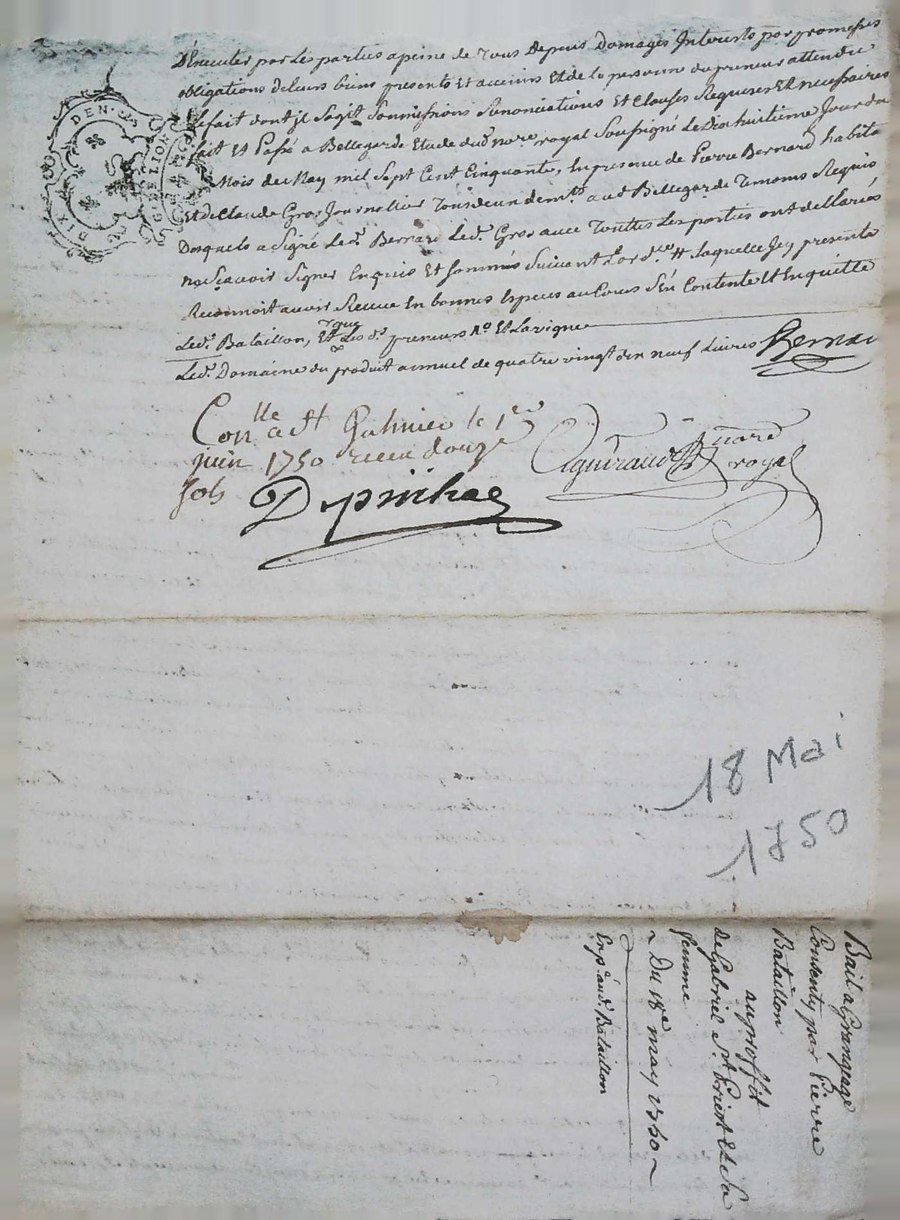 DIX DEN.
G. DE LION
D'Executer par les parties a peine de tous Depens Domages Interests par promesses
obligations de leurs biens presents Et avenirs Et de la personne du preneur attendu
le fait dont Il sagit Soumissions Renonciations Et Clauses Requises Et necessaires
fait Et Passé a Bellegarde Etude dud. no.re royal Soussigné Le Dix huitieme Jour du
Mois de May mil Sept Cent Cinquante, En presence de Pierre Bernard habita
Et de Claude Gros Journallier Tous deux dem.ts aud. Bellegarde Temoins Requis
Desquels a Signé Led. Bernard Led. Gros avec Toutes Les parties ont dellarés
ne Sçavoir Signer Enquis Et Sommés Suivant L'ord.ce # laquelle Jey presente
Reconnoit avoir Recue En bonnes Especes au Cours S'en Contente Et En quitte
Led. Bataillon, Et Les d. preneurs no. Et Lavigne
Led. Domaine du produit annuel de quatre vingt dix neuf Livres Bernar
Con.lle a S.t Galmier le 1.er
juin 1750 receu douze
sols
Dupinhac
Aguiraud no.re royal
18 Mai
1750
Bail a Grangeage
Consenty par Pierre
Bataillon
au proffit
de Gabriel S.t Priest Et Sa
femme
~ Du 18.e may 1750 ~
Exp. aud. Bataillon